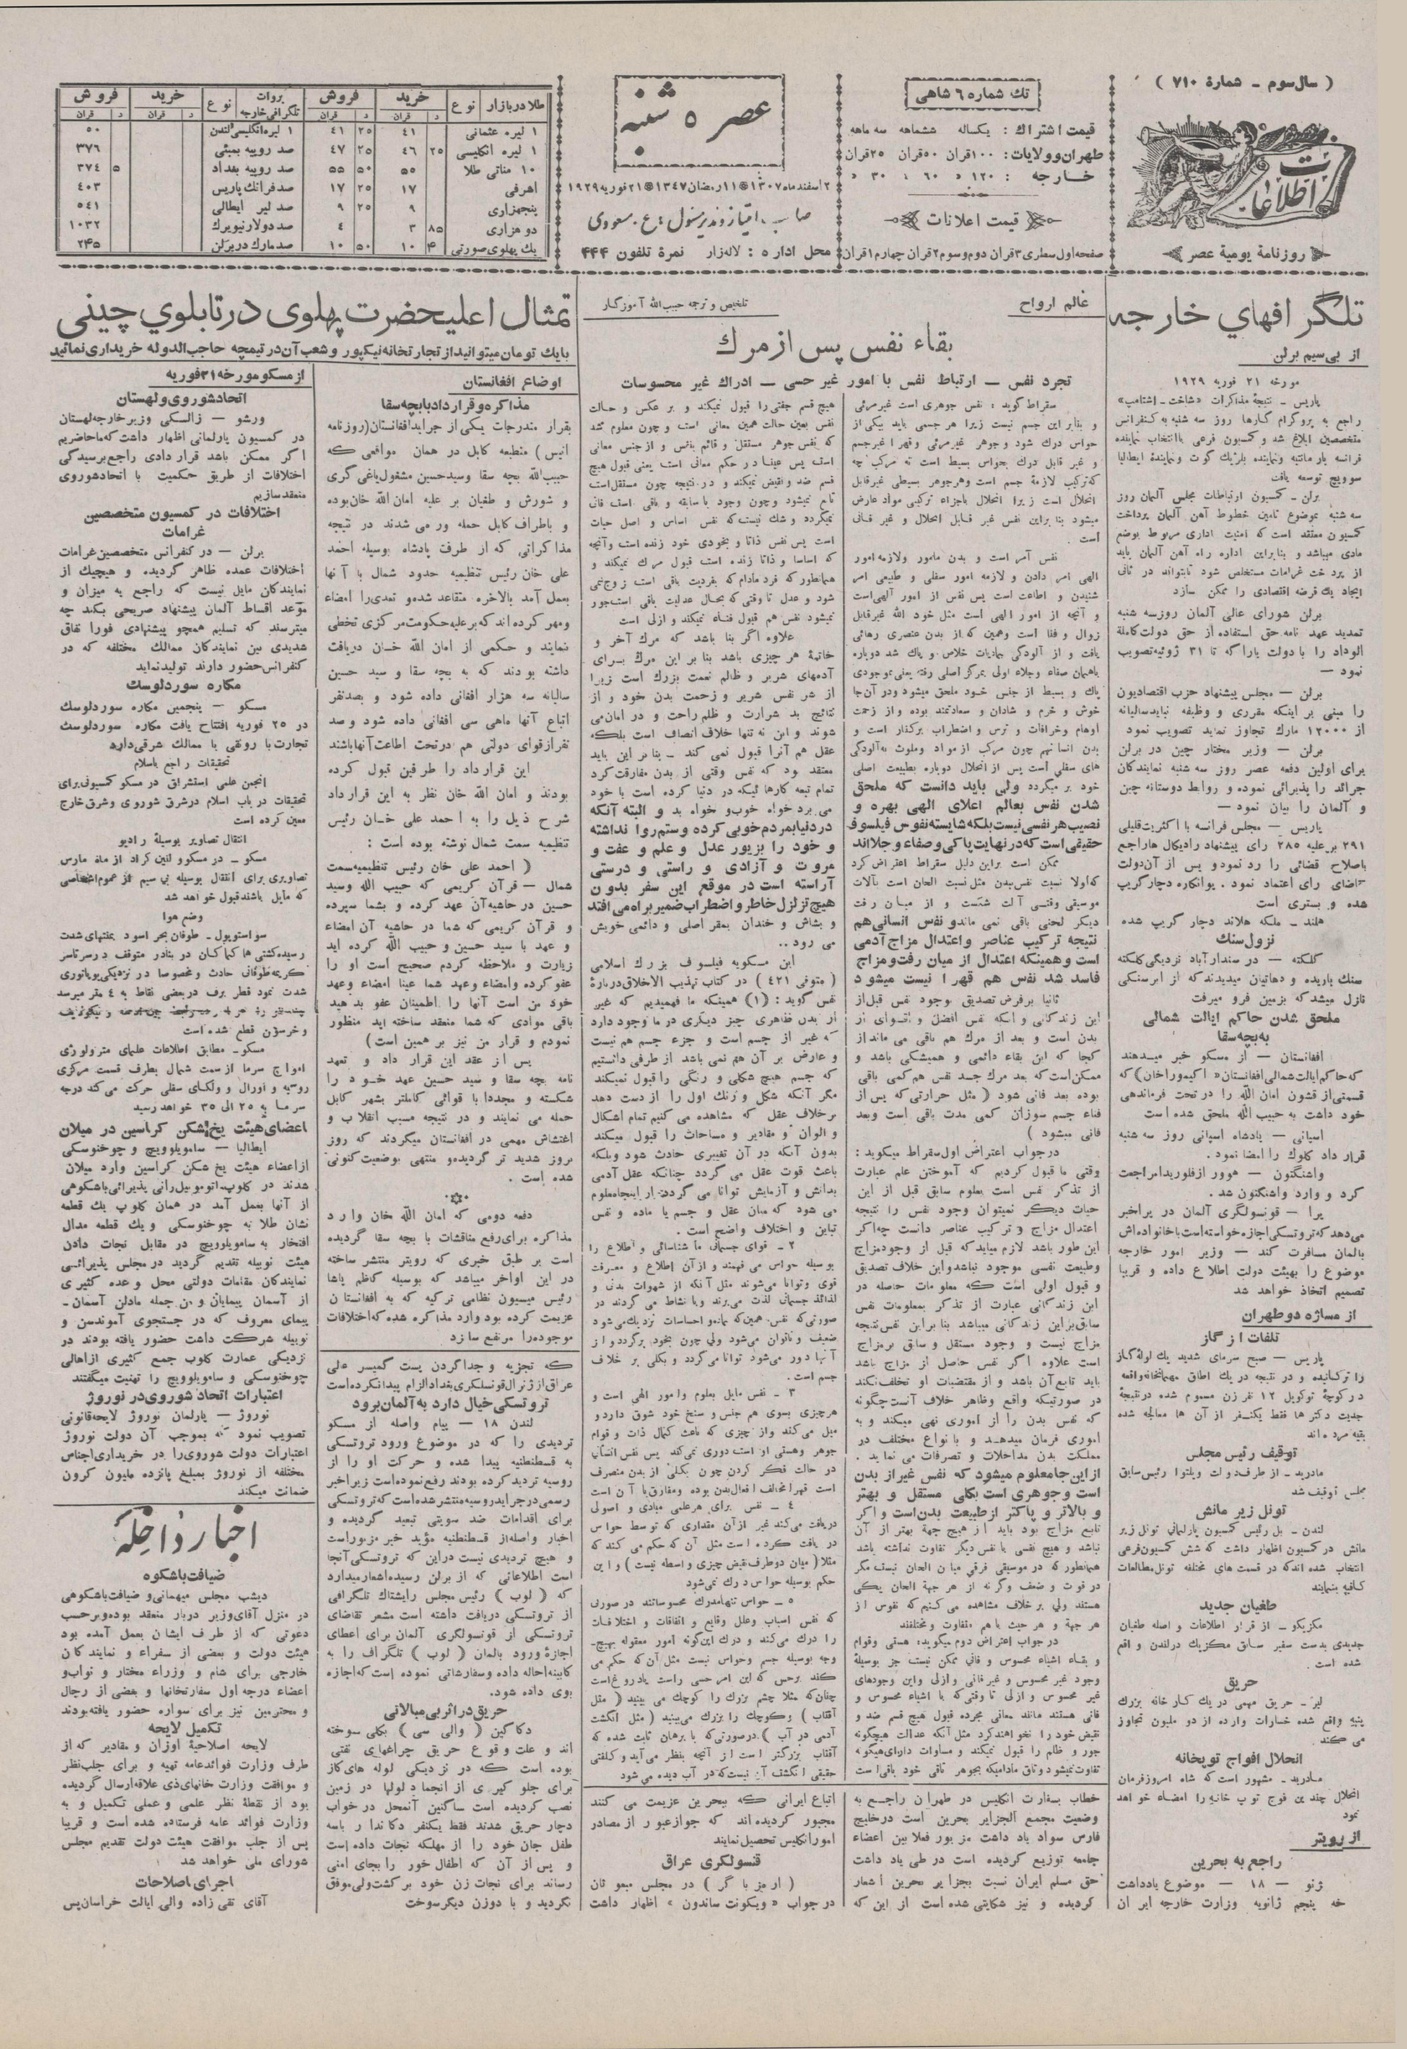 ( سال سوم ـ شمارهٔ ۷۱۰ )
اطلاعات
روزنامهٔ یومیهٔ عصر
تك شماره ۶ شاهی
قیمت اشتراك : یکساله ششماهه سه ماهه
طهران وولایات : ۱۰۰ قران ۵۰ قران ۲۵ قران
خارجه : ۱۲۰ » ۶۰ » ۳۰ »
قیمت اعلانات
صفحه اول سطری ۳ قران دوم وسوم ۲ قران چهارم ۱ قران
عصر ۵ شنبه
۲ اسفند ماه ۱۳۰۷ ۱۱ رمضان ۱۳۴۷ ۲۱ فوریه ۱۹۲۹
صاحب امتیاز و مدیر مسئول : ع . مسعودی
محل اداره : لاله‌زار نمرهٔ تلفون ۴۴۴
طلا در بازار نوع خرید فروش
۱ لیره عثمانی ۴۱ ۴۱ ۲۵
۱ لیره انگلیسی ۴۶ ۲۵ ۴۷ ۲۵
۱۰ مناتی طلا ۵۵ ۵۵ ۵۰
اشرفی ۱۷ ۱۷ ۲۵
پنجهزاری ۹ ۹ ۲۵
دوهزاری ۳ ۸۵ ۴
یك پهلوی صورتی ۱۰ ۴ ۱۰ ۵۰
بروات تلگرافی خارجه نوع خرید فروش
۱ لیره انگلیسی لندن ۵۰
صد روپیه بمبئی ۳۷۶
صد روپیه بغداد ۳۷۴ ۵
صد فرانك پاریس ۴۰۳
صد لیر ایطالی ۵۴۱
صد دولار نیویرك ۱۰۳۲
صد مارك در برلن ۲۴۵
تلگرافهای خارجه
از بی‌سیم برلن
مورخه ۲۱ فوریه ۱۹۲۹
پاریس ـ نتیجهٔ مذاکرات «شاخت ـ اشتامپ»
راجع به پروگرام کارها روز سه شنبه به کنفرانس
متخصصین ابلاغ شد و کمسیون فرعی با انتخاب نماینده
سوویچ توسعه یافت
برلن ـ کمسیون ارتباطات مجلس آلمان روز
سه شنبه بموضوع تامین خطوط آهن آلمان پرداخت
کمسیون معتقد است که امنیت اداری مربوط بوضع
مادی میباشد و بنابراین اداره راه آهن آلمان باید
از پرداخت غرامات مستخلص شود تابتواند در ثانی
ایجاد یك قرضه اقتصادی را ممکن سازد
برلن شورای عالی آلمان روز سه شنبه
تمدید عهد نامه حق استفاده از حق دولت کاملة
الوداد را با دولت یاراگه تا ۳۱ ژوئیه تصویب
نمود ـ
برلن ـ مجلس پیشنهاد حزب اقتصادیون
را مبنی بر اینکه مقرری و وظیفه نباید سالیانه
از ۱۲۰۰۰ مارك تجاوز نماید تصویب نمود
برلن ـ وزیر مختار چین در برلن
برای اولین دفعه عصر روز سه شنبه نمایندگان
جرائد را پذیرائی نموده و روابط دوستانه چین
و آلمان را بیان نمود ـ
پاریس ـ مجلس فرانسه با اکثریت قلیلی
۲۹۱ بر علیه ۲۸۵ رای پیشنهاد رادیکال‌ها راجع
باصلاح قضائی را رد نمود و پس از آن دولت
تقاضای رای اعتماد نمود . پوانکاره دچار گریپ
شده و بستری است
هلند ـ ملکه هلاند دچار گریپ شده
نزول سنك
کلکته ـ در سندارآباد نزدیکی کلکته
سنك باریده و دهاتیان میدیدند که از ابر سنگی
نازل میشد که بزمین فرو میرفت
ملحق شدن حاکم ایالت شمالی
به بچه سقا
افغانستان ـ از مسکو خبر میدهند
که حاکم ایالت شمالی افغانستان « اکیه‌موراخان » که
قسمتی از قشون امان الله را در تحت فرماندهی
خود داشت به حبیب الله ملحق شده است
اسپانی ـ پادشاه اسپانی روز سه شنبه
قرارداد کلوك را امضا نمود .
واشنگتون ـ هوور از فلورید امراجعت
کرد و وارد واشنگتون شد .
پرا ـ قونسولگری آلمان در پرا خبر
میدهد که تروتسکی اجازه خواسته است با خانواده اش
بالمان مسافرت کند ـ وزیر امور خارجه
موضوع را بهیئت دولت اطلاع داده و قریبا
تصمیم اتخاذ خواهد شد
از مساژه دو طهران
تلفات از گاز
پاریس ـ صبح سرمای شدید یك لولهٔ گاز
را ترکانیده و در نتیجه در یك اطاق مهمانخانه واقعه
در کوچهٔ توکویل ۱۲ نفر زن مسموم شده در نتیجهٔ
جدیت دکترها فقط یکنفر از آن ها معالجه شده
بقیه مرده اند
توقیف رئیس مجلس
مادرید ـ از طرف دولت ویلنوا رئیس سابق
مجلس توقیف شد
تونل زیر مانش
لندن ـ بل رئیس کمسیون پارلمانی تونل زیر
مانش در کمسیون اظهار داشت که شش کمسیون فرعی
انتخاب شده اند که در قسمت های مختلفه تونل مطالعات
کافیه بنمایند
طغیان جدید
مکزیکو ـ از قرار اطلاعات واصله طغیان
جدیدی بدست سفیر سابق مکزیك در لندن واقع
شده است
حریق
لیژ ـ حریق مهمی در یك کارخانه بزرك
پنبه واقع شده خسارات وارده از دو ملیون تجاوز
می کند
انحلال افواج توپخانه
مادرید ـ مشهور است که شاه امروز فرمان
انحلال چندین فوج توپ خانه را امضاء خواهد
نمود
از رویتر
راجع به بحرین
ژنو ـ ۱۸ ـ موضوع یادداشت
پنجم ژانویه وزارت خارجه ایران
عالم ارواح
تلخیص و ترجمه حبیب الله آموزگار
بقاء نفس پس از مرك
تجرد نفس ـ ارتباط نفس با امور غیر حسی ـ ادراك غیر محسوسات
سقراط گوید : نفس جوهری است غیر مرئی
و بنابر این جسم نیست زیرا هر جسمی باید بیکی از
حواس درك شود و جوهر غیر مرئی وقهرا غیر جسم
و غیر قابل درك بحواس بسیط است نه مرکب چه
که ترکیب لازمهٔ جسم است و هر جوهر بسیطی غیر قابل
انحلال است زیرا انحلال باجزاء ترکیبی مواد عارض
میشود بنابراین نفس غیر قابل انحلال و غیر فانی
است .
نفس آمر است و بدن مامور ولازمه امور
الهی امر دادن و لازمه امور سفلی و طبیعی امر
شنیدن و اطاعت است پس نفس از امور الهی است
و آنچه از امور الهی است مثل خود الله غیر قابل
زوال و فنا است وهمین که از بدن عنصری رهائی
یافت و از آلودگی بمادیات خلاص و پاك شد دوباره
باهمان صفاء وجلاء اولی بمرکز اصلی رفته یعنی بوجودی
پاك و بسیط از جنس خود ملحق میشود ودر آن جا
خوش و خرم و شادان و سعادتمند بوده واز زحمت
اوهام وخرافات و ترس و اضطراب برکنار است و
بدن انسانهم چون مرکب از مواد وملوث به آلودگی
های سفلی است پس از انحلال دوباره بطبیعت اصلی
خود بر میگردد ولی باید دانست که ملحق
شدن نفس بعالم اعلای الهی بهره و
نصیب هر نفسی نیست بلکه شایسته نفوس فیلسوف
حقیقی است که در نهایت پاکی و صفاء و جلا اند
ممکن است براین دلیل سقراط اعتراض کرد
که اولا نسبت نفس ببدن مثل نسبت الحان است بآلات
موسیقی وقتی آلت شکست و از میان رفت
دیگر لحنی باقی نمی ماند و نفس انسانی هم
نتیجه ترکیب عناصر و اعتدال مزاج آدمی
است و همینکه اعتدال از میان رفت و مزاج
فاسد شد نفس هم قهرا نیست میشود
ثانیا برفرض تصدیق بوجود نفس قبل از
این زندگانی و اینکه نفس افضل و اقوای از
بدن است و بعد از مرك هم باقی می ماند از
کجا که این بقاء دائمی و همیشگی باشد و
ممکن است که بعد مرك جسد نفس هم کمی باقی
بوده بعد فانی شود ( مثل حرارتی که پس از
فناء جسم سوزان کمی مدت باقی است وبعد
فانی میشود )
درجواب اعتراض اول سقراط میگوید :
وقتی ما قبول کردیم که آموختن علم عبارت
از تذکر نفس است بعلوم سابق قبل از این
حیات دیگر نمیتوان وجود نفس را نتیجه
اعتدال مزاج و ترکیب عناصر دانست چه اگر
این طور باشد لازم میاید که قبل از وجود مزاج
وطبیعت نفسی موجود نباشد و این خلاف تصدیق
و قبول اولی است که معلومات حاصله در
این زندگانی عبارت از تذکر بمعلومات نفس
سابق براین زندگانی میباشد بنابر این نفس نتیجه
مزاج نیست و وجود مستقل و سابق بر مزاج
است علاوه اگر نفس حاصل از مزاج باشد
باید تابع آن باشد و از مقتضیات او تخلف نکند
در صورتیکه واقع وظاهر خلاف آنست چگونه
که نفس بدن را از اموری نهی میکند و به
اموری فرمان میدهد و بانواع مختلف در
مملکت بدن مداخلات و تصرفات می نماید .
از این جا معلوم میشود که نفس غیر از بدن
است و جوهری است بکلی مستقل و بهتر
و بالاتر و پاکتر از طبیعت بدن است و اگر
تابع مزاج بود باید از هیچ جهة بهتر از آن
نباشد و هیچ نفسی با نفس دیگر تفاوت نداشته باشد
همانطور که در موسیقی فرقی میان الحان نیست مگر
در قوت و ضعف و گرنه از هر جهة الحان یکی
هستند ولی بر خلاف مشاهده می کنیم که نفوس از
هر جهة و هر حیث باهم متفاوت و مختلفند
درجواب اعتراض دوم میگوید : هستی وقوام
و بقاء اشیاء محسوس و فانی ممکن نیست جز بوسیلهٔ
وجود غیر محسوس و غیر فانی و ازلی و این وجودهای
غیر محسوس و ازلی تا وقتی که با اشیاء محسوس و
فانی هستند مانند معانی مجرده قبول هیچ قسم ضد و
نقیض خود را نخواهند کرد مثل آنکه عدالت هیچگونه
جور و ظلم را قبول نمیکند و مساوات دارای هیچگونه
هیچ قسم جفتی را قبول نمیکند و بر عکس و حالت
نفس بعین حالت همین معانی است و چون معلوم شد
که نفس جوهر مستقل و قائم بالنفس و از جنس معانی
است پس عینا در حکم معانی است یعنی قبول هیچ
قسم ضد و نقیض نمیکند و در نتیجه چون مستقل است
تابع نمیشود وچون وجود با سابقه و باقی است فانی
نمیگردد و شك نیست که نفس اساس و اصل حیات
است پس نفس ذاتا و بخودی خود زنده است و آنچه
که اساسا و ذاتا زنده است قبول مرك نمیکند و
همانطور که فرد مادام که بفردیت باقی است زوج نمی
شود و عدل تا وقتی که بحال عدلیت باقی است جور
نمیشود نفس هم قبول فناء نمیکند و ازلی است
علاوه اگر بنا باشد که مرك آخر و
خاتمهٔ هر چیزی باشد بنا بر این مرك برای
آدمهای شریر و ظالم نعمت بزرك است زیرا
از شر نفس شریر و زحمت بدن خود و از
نتایج بد شرارت و ظلم راحت و در امان می
شوند و این نه تنها خلاف انصاف است بلکه
عقل هم آنرا قبول نمی کند ـ بنابر این باید
معتقد بود که نفس وقتی از بدن مفارقت کرد
تمام تبعه کارهائیکه در دنیا کرده است با خود
می برد خواه خوب و خواه بد و البته آنکه
در دنیا بمردم خوبی کرده و ستم روا نداشته
و خود را بزیور عدل و علم و عفت و
مروت و آزادی و راستی و درستی
آراسته است در موقع این سفر بدون
هیچ تزلزل خاطر و اضطراب ضمیر براه می افتد
و بشاش و خندان بمقر اصلی و دائمی خویش
می رود ..
ابن مسکویه فیلسوف بزرك اسلامی
( متوفی ۴۲۱ ) در کتاب تهذیب الاخلاق در بارهٔ
نفس گوید : (۱) همینکه ما فهمیدیم که غیر
از بدن ظاهری چیز دیگری در ما وجود دارد
که غیر از جسم است و جزء جسم هم نیست
و عارض بر آن هم نمی باشد از طرفی دانستیم
که جسم هیچ شکلی و رنگی را قبول نمیکند
مگر آنکه شکل و رنك اول را از دست دهد
برخلاف عقل که مشاهده می کنیم تمام اشکال
و الوان و مقادیر و مساحات را قبول میکند
بدون آنکه در آن تغییری حادث شود و بلکه
باعث قوت عقل می گردد چنانکه عقل آدمی
بدانش و آزمایش توانا می گردد از اینجا معلوم
می شود که میان عقل و جسم یا ماده و نفس
تباین و اختلاف واضح است .
۲ ـ قوای جسمانی ما شناسائی و اطلاع را
بوسیله حواس می فهمند و از آن اطلاع و معرفت
قوی و توانا می‌شوند مثل آنکه از شهوات بدنی و
لذائذ جسمانی لذت می‌برند و بانشاط می گردند در
ضعیف و ناتوان می‌شود ولی چون بخود برگردد و از
آنها دور می‌شود توانا می‌گردد و بکلی بر خلاف
جسم است .
۳ ـ نفس مایل بعلوم و امور الهی است و
هر چیزی بسوی هم جنس و سنخ خود شوق دارد و
میل می‌کند و از چیزی که باعث کمال ذات و قوام
جوهر و هستی او است دوری نمی‌کند پس نفس انسانی
در حالت فکر کردن چون بکلی از بدن منصرف
است قهرا مخالف افعال بدن بوده و مفارق با آن است
۴ ـ نفس برای هر علمی مبادی و اصولی
دریافت می‌کند غیر از آن مقداری که توسط حواس
دریافت کرده است مثل آن که حکم می کند که
مثلا ( میان دو طرف نقیض چیزی واسطه نیست ) و این
حکم بوسیله حواس درك نمی‌شود
۵ ـ حواس تنها مدرك محسوسانند در صورتی
که نفس اسباب و علل وقایع و اتفاقات و اختلافات
را درك می‌کند و درك این گونه امور معقوله بهیچ ـ
وجه بوسیله جسم و حواس نیست مثل آن که حکم می
کند برحس که این امر حسی راست یا دروغ است
چنان که مثلا چشم بزرك را کوچك می بیند ( مثل
آفتاب ) و کوچك را بزرك می‌بیند ( مثل انگشت
آدمی در آب ) در صورتی که با برهان ثابت شده که
آفتاب بزرگتر است از آنچه بنظر می‌آید و کلفتی
حقیقی انگشت آن نیست که در آب دیده می شود
خطاب بسفارت انگلیس در طهران راجع به
وضعیت مجمع الجزایر بحرین است در خلیج
فارس سواد یاد داشت مزبور فعلا بین اعضاء
جامعه توزیع گردیده است در طی یاد داشت
حق مسلم ایران نسبت بجزایر بحرین اشعار
گردیده و نیز شکایتی شده است از این که
اتباع ایرانی که ببحرین عزیمت می کنند
مجبور گردیده اند که جواز عبور از مصادر
امور انگلیس تحصیل نمایند
قنسولگری عراق
( ارمز باگر ) در مجلس مبعوثان
در جواب « ویکونت ساندون » اظهار داشت
تمثال اعلیحضرت پهلوی در تابلوی چینی
با یك تومان میتوانید از تجارتخانه نیکپور و شعب آن در تیمچه حاجب الدوله خریداری نمائید
اوضاع افغانستان
مذاکره و قرارداد با بچه سقا
بقرار مندرجات یکی از جراید افغانستان ( روزنامه
انیس ) منطبعه کابل در همان مواقعی که
حبیب الله بچه سقا و سید حسین مشغول یاغی گری
و شورش و طغیان بر علیه امان الله خان بوده
و باطراف کابل حمله ور می شدند در نتیجه
مذاکراتی که از طرف پادشاه بوسیله احمد
علی خان رئیس تنظیمیه حدود شمال با آنها
بعمل آمد بالاخره متقاعد شده و تعهدی را امضاء
ومهر کرده اند که بر علیه حکومت مرکزی تخطی
ننمایند و حکمی از امان الله خان دریافت
داشته بودند که به بچه سقا و سید حسین
سالیانه سه هزار افغانی داده شود و بصد نفر
اتباع آنها ماهی سی افغانی داده شود و صد
نفر از قوای دولتی هم در تحت اطاعت آنها باشند
این قرارداد را طرفین قبول کرده
بودند و امان الله خان نظر به این قرارداد
شرح ذیل را به احمد علی خان رئیس
تنظیمیه سمت شمال نوشته بوده است :
( احمد علی خان رئیس تنظیمیه سمت
شمال ـ قرآن کریمی که حبیب الله وسید
حسین در حاشیه آن عهد کرده و بشما سپرده
و قرآن کریمی که شما در حاشیه آن امضاء
و عهد با سید حسین و حبیب الله کرده اید
زیارت و ملاحظه کردم صحیح است او را
عفو کرده و امضاء وعهد شما عینا امضاء وعهد
خود من است آنها را اطمینان عفو بدهید
باقی موادی که شما منعقد ساخته اید منظور
نمودم و قرار من نیز بر همین است )
پس از عقد این قرارداد و تعهد
نامه بچه سقا و سید حسین عهد خود را
شکسته و مجددا با قوائی کاملتر بشهر کابل
حمله می نمایند و در نتیجه مسبب انقلاب و
اغتشاش مهمی در افغانستان میگردند که روز
بروز شدید تر گردیده و منتهی بوضعیت کنونی
شده است .
دفعه دومی که امان الله خان وارد
مذاکره برای رفع مناقشات با بچه سقا گردیده
است بر طبق خبری که رویتر منتشر ساخته
در این اواخر میباشد که بوسیله کاظم پاشا
رئیس میسیون نظامی ترکیه که به افغانستان
عزیمت کرده بود وارد مذاکره شده که اختلافات
موجوده را مرتفع سازد
که تجزیه و جدا کردن پست کمیسر علی
عراق از ژنرال قونسلگری بغداد الزام پیدا نکرده است
تروتسکی خیال دارد به آلمان برود
لندن ۱۸ ـ پیام واصله از مسکو
تردیدی را که در موضوع ورود تروتسکی
به قسطنطنیه پیدا شده و حرکت او را از
روسیه تردید کرده بودند رفع نموده است زیرا خبر
رسمی در جراید روسیه منتشر شده است که تروتسکی
برای اقدامات ضد سویتی تبعید گردیده و
اخبار واصله از قسطنطنیه مؤید خبر مزبور است
و هیچ تردیدی نیست در این که تروتسکی آنجا
است اطلاعاتی که از برلن رسیده اشعار میدارد
که ( لوب ) رئیس مجلس رایشتاك تلگرافی
از تروتسکی دریافت داشته است مشعر تقاضای
تروتسکی از قونسولگری آلمان برای اعطای
اجازهٔ ورود بالمان ( لوب ) تلگراف را به
کابینه احاله داده و سفارشاتی نموده است که اجازه
بوی داده شود .
حریق در اثر بی مبالاتی
دکاکین ( والی سی ) بکلی سوخته
اند و علت وقوع حریق چراغهای نفتی
بوده است که در نزدیکی لوله های گاز
برای جلوگیری از انجماد لولها در زمین
نصب کردیده است ساکنین آنمحل در خواب
دچار حریق شدند فقط یکنفر دکاندار باسه
طفل جان خود را از مهلکه نجات داده است
و پس از آن که اطفال خور را بجای امنی
رساند برای نجات زن خود برگشت ولی موفق
نگردید و با دوزن دیگر سوخت
از مسکو مورخه ۲۱ فوریه
اتحاد شوروی و لهستان
ورشو ـ زالسکی وزیر خارجه لهستان
در کمسیون پارلمانی اظهار داشت که ما حاضریم
اگر ممکن باشد قرار دادی راجع برسیدگی
اختلافات از طریق حکمیت با اتحاد شوروی
منعقد سازیم
اختلافات در کمسیون متخصصین
غرامات
برلن ـ در کنفرانس متخصصین غرامات
اختلافات عمده ظاهر گردیده و هیچیك از
نمایندگان مایل نیست که راجع به میزان و
موعد اقساط آلمان پیشنهاد صریحی بکند چه
میترسند که تسلیم همچو پیشنهادی فورا نفاق
شدیدی بین نمایندگان ممالك مختلفه که در
کنفرانس حضور دارند تولید نماید
مکاره سوردلوسك
مسکو ـ پنجمین مکاره سوردلوسك
در ۲۵ فوریه افتتاح یافت مکاره سوردلوسك
تجارت با رونقی با ممالك شرقی دارد
تحقیقات راجع باسلام
انجمن علمی استشراق در مسکو کمسیونی برای
تحقیقات در باب اسلام در شرق شوروی و شرق خارج
معین کرده است
انتقال تصاویر بوسیله رادیو
مسکو ـ در مسکو و لنین گراد از ماه مارس
تصاویری برای انتقال بوسیله بی سیم از عموم اشخاصی
که مایل باشند قبول خواهد شد
وضع هوا
سواستوپول ـ طوفان بحر اسود بمنتهای شدت
رسیده کشتی ها کما کان در بنادر متوقف در سرتاسر
کریمه طوفان حادث و مخصوصا در نزدیکی یوپاتوری
شدت نمود قطر برف در بعضی نقاط به ۴ متر میرسد
و خرسون قطع شده است
مسکو ـ مطابق اطلاعات علمای مترولوژی
امواج سرما از سمت شمال بطرف قسمت مرکزی
روسیه و اورال و ولکای سفلی حرکت می‌کند درجه
سرما به ۲۵ الی ۳۵ خواهد رسید
اعضای هیئت یخ شکن کراسین در میلان
ایطالیا ـ سامویلوویچ و چوخنوسکی
از اعضاء هیئت یخ شکن کراسین وارد میلان
شدند در کلوپ اتوموبیل رانی پذیرائی باشکوهی
از آنها بعمل آمد در همان کلوپ یك قطعه
نشان طلا به چوخنوسکی و یك قطعه مدال
افتخار به سامویلوویچ در مقابل نجات دادن
هیئت نوبیله تقدیم گردید در مجلس پذیرائی
نمایندگان مقامات دولتی محل و عده کثیری
از آسمان پیمایان و من جمله مادلن آسمان ـ
پیمای معروف که در جستجوی آموندسن و
نوبیله شرکت داشت حضور یافته بودند در
نزدیکی عمارت کلوب جمع کثیری از اهالی
چوخنوسکی و سامویلوویچ را تهنیت میگفتند
اعتبارات اتحاد شوروی در نوروژ
نوروژ ـ پارلمان نوروژ لایحه قانونی
تصویب نمود که بموجب آن دولت نوروژ
اعتبارات دولت شوروی را در خریداری اجناس
مختلفه از نوروژ بمبلغ پانزده ملیون کرون
ضمانت میکند
اخبار داخله
ضیافت باشکوه
دیشب مجلس میهمانی و ضیافت باشکوهی
در منزل آقای وزیر دربار منعقد بوده و برحسب
دعوتی که از طرف ایشان بعمل آمده بود
هیئت دولت و بعضی از سفراء و نمایندگان
خارجی برای شام و وزراء مختار و نواب و
اعضاء درجه اول سفارتخانها و بعضی از رجال
و محترمین نیز برای سواره حضور یافته بودند
تکمیل لایحه
لایحه اصلاحیهٔ اوزان و مقادیر که از
طرف وزارت فوائد عامه تهیه و برای جلب نظر
و موافقت وزارت خانهای ذی علاقه ارسال گردیده
بود از نقطهٔ نظر علمی و عملی تکمیل و به
وزارت فوائد عامه فرستاده شده است و قریبا
پس از جلب موافقت هیئت دولت تقدیم مجلس
شورای ملی خواهد شد
اجرای اصلاحات
آقای تقی زاده والی ایالت خراسان پس